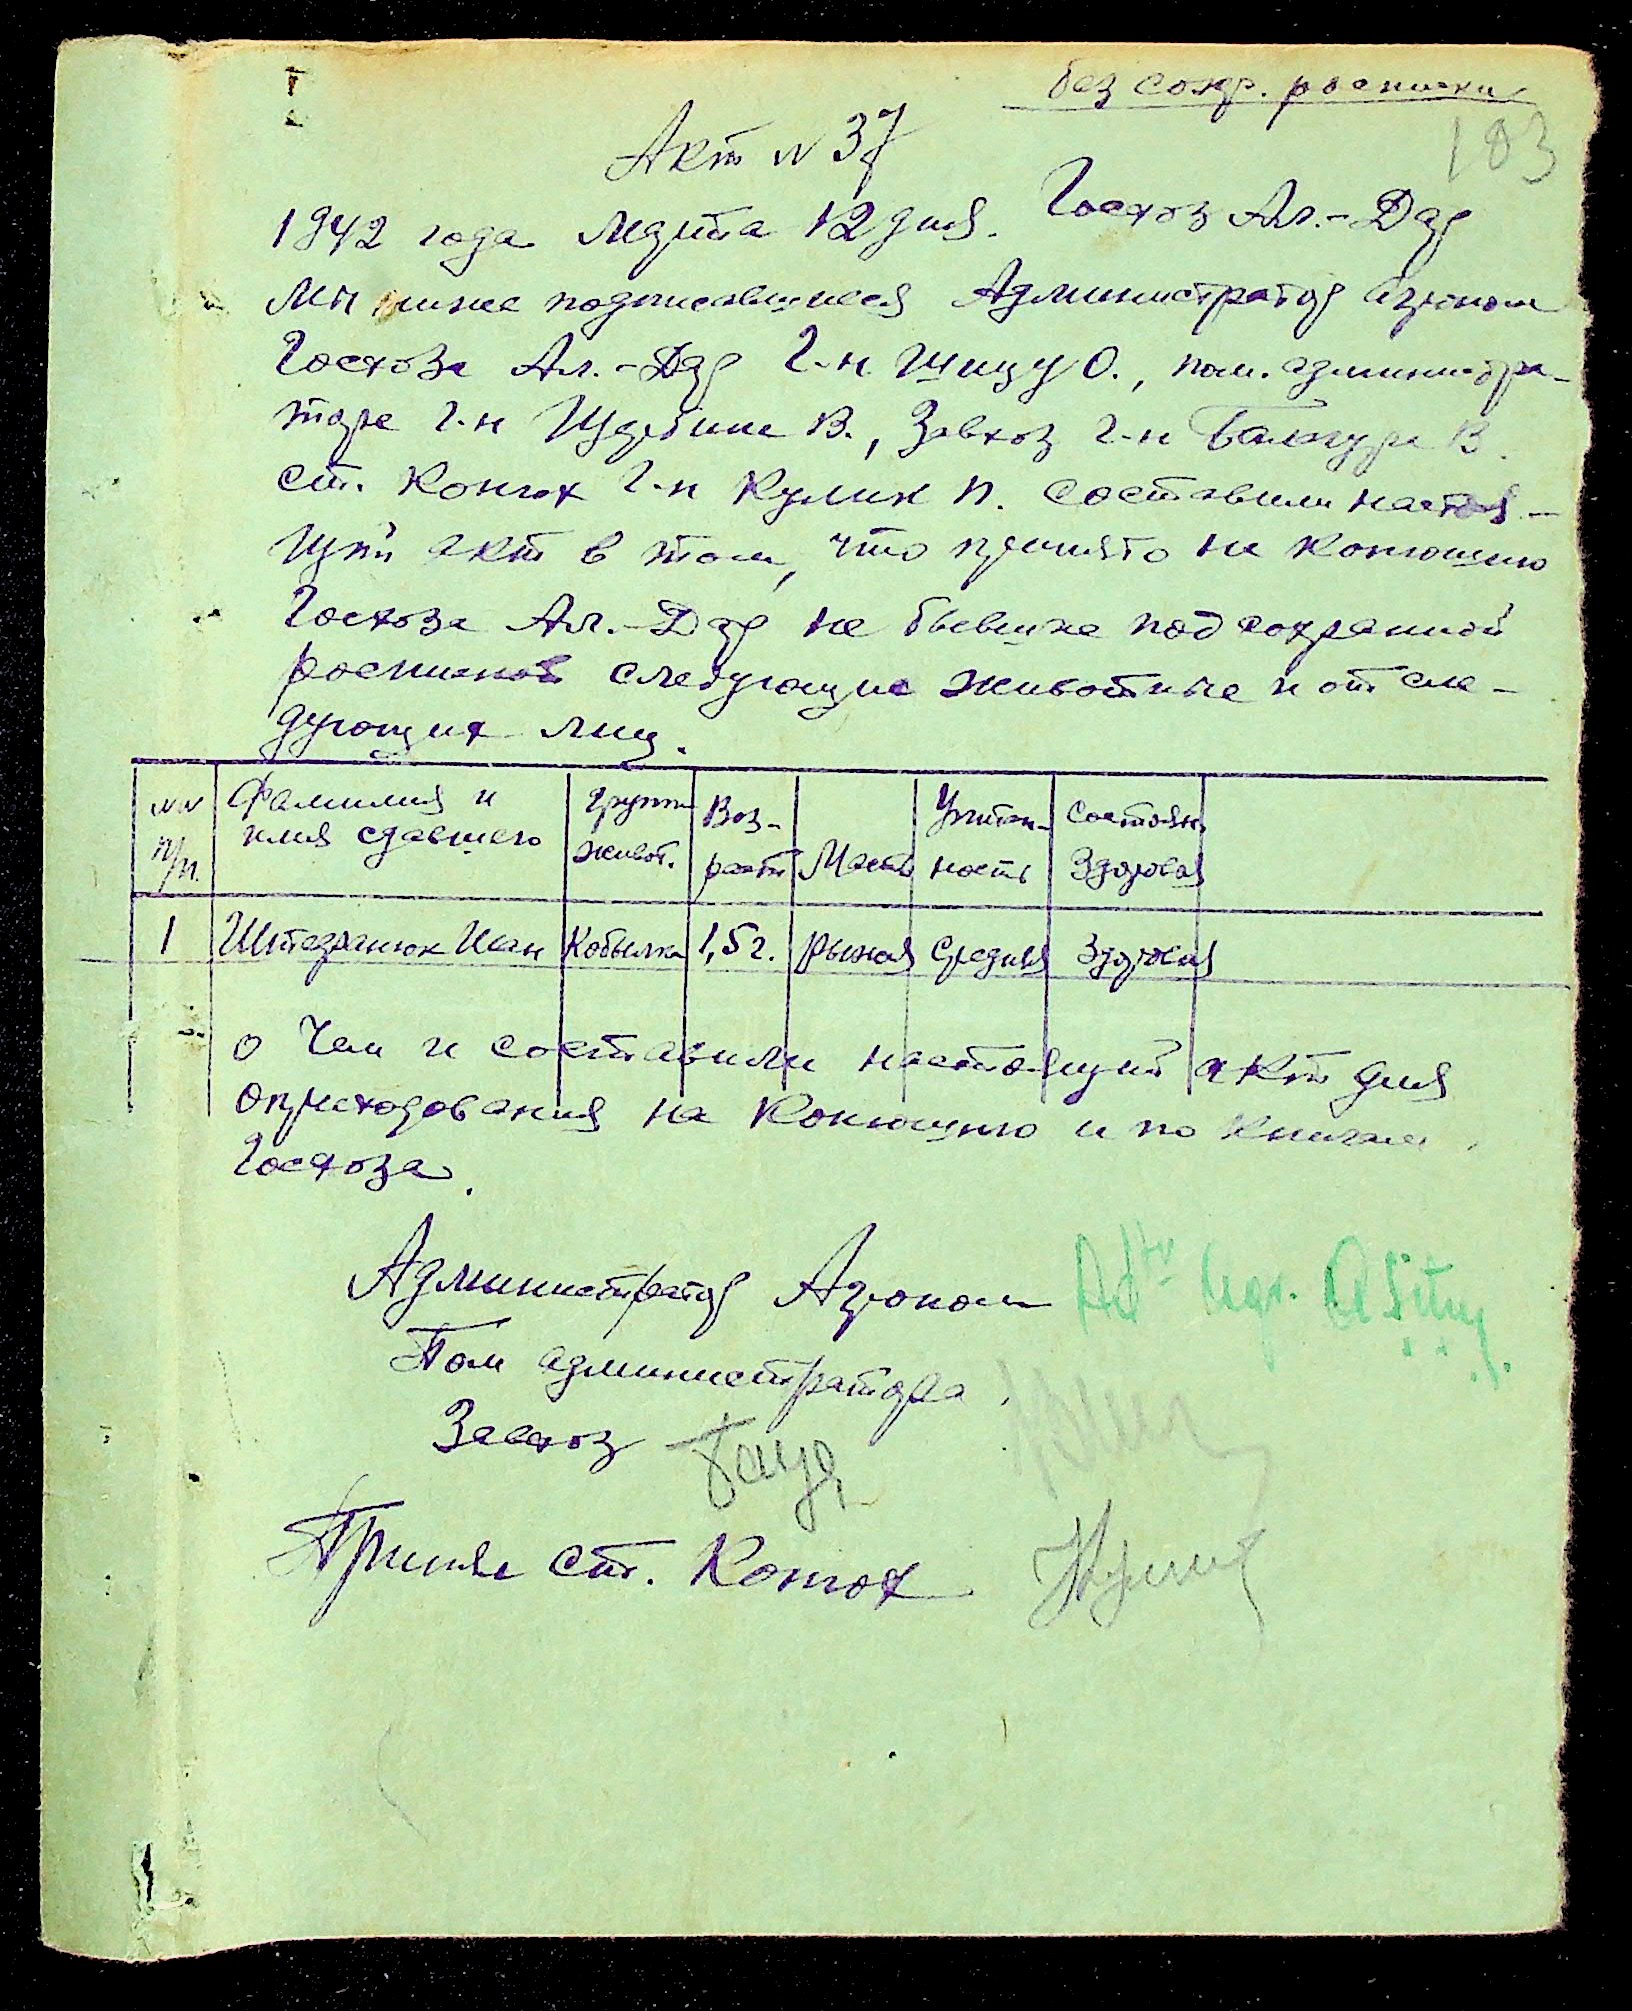 без сохр. росписки
103
Акт N 37
1942 года марта 12 дня. Госхоз Ал.-Дар
Мы ниже подписавшиеся Администратор агроном
Госхоза Ал.-Дар г-н Шицу О., пом. администра-
тора г-н Щербина В., Завхоз г-н В.
ст. Конюх г-н Кулик П. составили настоя-
щий акт в том, что принято на конюшню
Госхоза Ал.-Дар не бывшие под сохранной
роспиской следующие животные и от сле-
дующих лиц.
NN п/п. Фамилия и имя сдавшего Групп живот. Воз-раст Масть Упитан-ность Состоян. Здоровья
1 Иван Кобылка 1,5 г. Рыжая Средняя Здоровая
о чем и составили настоящий акт для
оприходования на Конюшню и по книгам
Госхоза.
Администратор Агроном Agr.
Пом администратора
Завхоз
Принял ст. Конюх